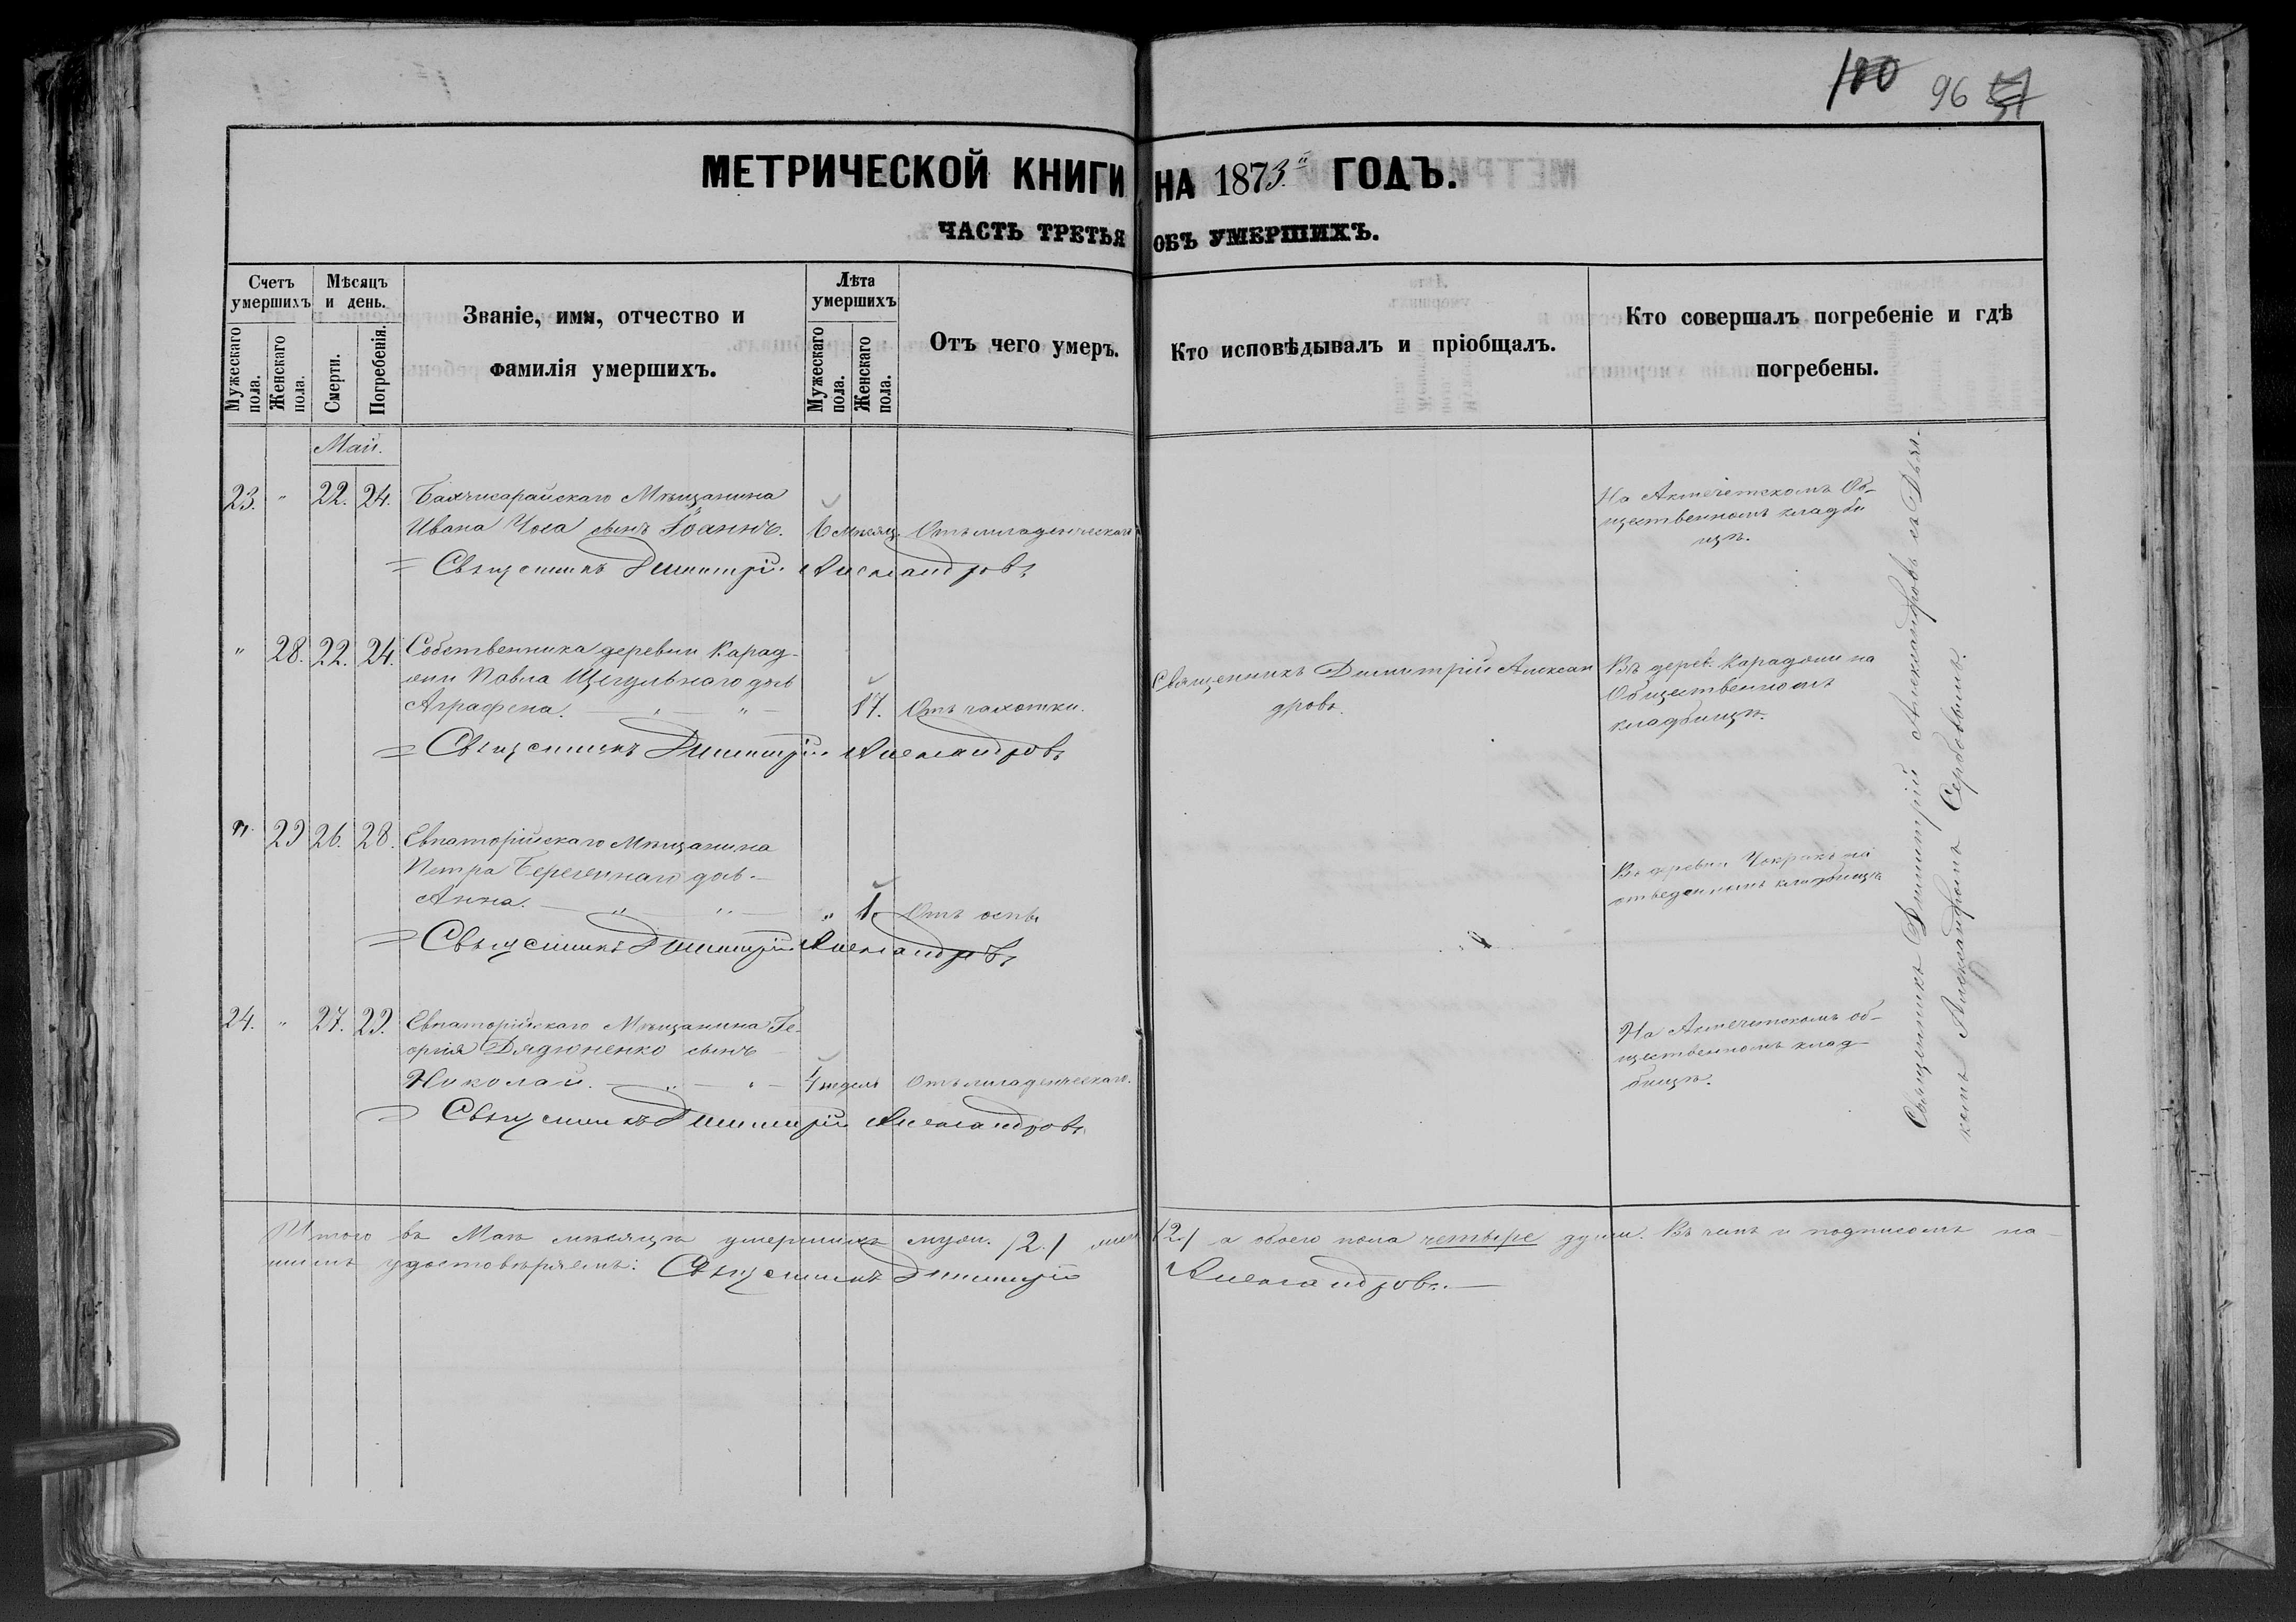 100 96
МЕТРИЧЕСКОЙ КНИГИ НА 1873.й ГОДЪ.
ЧАСТЬ ТРЕТЬЯ ОБЪ УМЕРШИХЪ.
Счетъ умершихъ
Мѣсяцъ и день.
Званіе, имя, отчество и
фамилія умершихъ.
Лѣта умершихъ
Отъ чего умеръ.
Кто исповѣдывалъ и пріобщалъ.
Кто совершалъ погребеніе и гдѣ
погребены.
Мужескаго пола.
Женскаго пола.
Смерти.
Погребенія.
Мужескаго пола.
Женскаго пола.
Май.
23. " 22. 24. Бахчисарайскаго Мѣщанина
Ивана Чоса сынъ Іоаннъ. 6 мѣсяц. Отъ младенческаго
На Акмечетскомъ Об-
щественномъ кладби
щѣ.
= Священникъ Димитрій Александровъ
" 28. 22. 24. Собственника деревни Карад-
Павла Щегульнаго дочь
Аграфена. — " — " — 17. Отъ чахотки.
Священникъ Димитрій Алексан
дровъ.
Въ дерев. на
Общественномъ
кладбищѣ.
= Священникъ Димитрій Александровъ
" 29 26. 28. Евпаторійскаго Мѣщанина
Петра дочь
Анна. — " — " — " 1. Отъ оспы
Въ деревни Чокракъ на
отведенномъ кладбищѣ
= Священникъ Димитрій Александровъ
24. " 27. 29. Евпаторійскаго Мѣщанина Ге-
оргія Дядюненко сынъ
Николай. — " — " — 4 недель Отъ младенческаго.
На Акмечетскомъ об-
щественномъ клад-
бищѣ.
= Священникъ Димитрій Александровъ
Священникъ Димитрій Александровъ съ Дьяч.
комъ Александромъ Сербовымъ.
Итого въ Маѣ мѣсяцѣ умершихъ муж. /2./ жен. /2./ а обоего пола четыре души. Въ чемъ и подписомъ на-
шимъ удостовѣряемъ: Священникъ Димитрій Александровъ. —